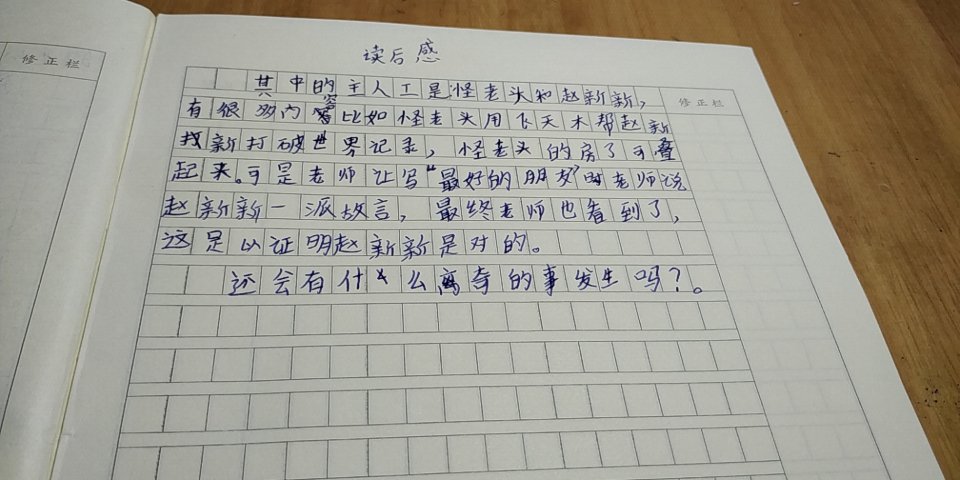 修正栏
读后感
修正栏
其中的主人工是怪老头和赵新新,
有很多内容比如怪老头用飞天木帮赵新
找新打破世界记录,怪老头的房了可叠
起来。可是老师让写“最好的朋友”时老师说
赵新新一派故言,最终老师也看到了,
这是以证明赵新新是对的。
还会有什么离奇的事发生吗?。